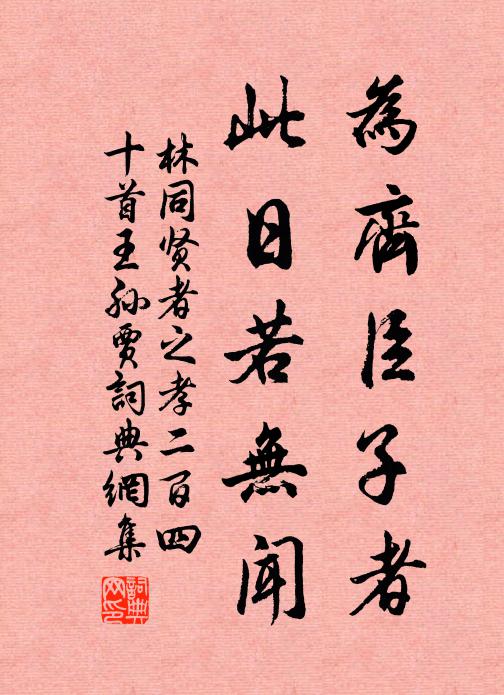 為齊臣子者
此日若無聞
林同贤者之孝二百四
十首王孙賈詞典網集
詞典
网印